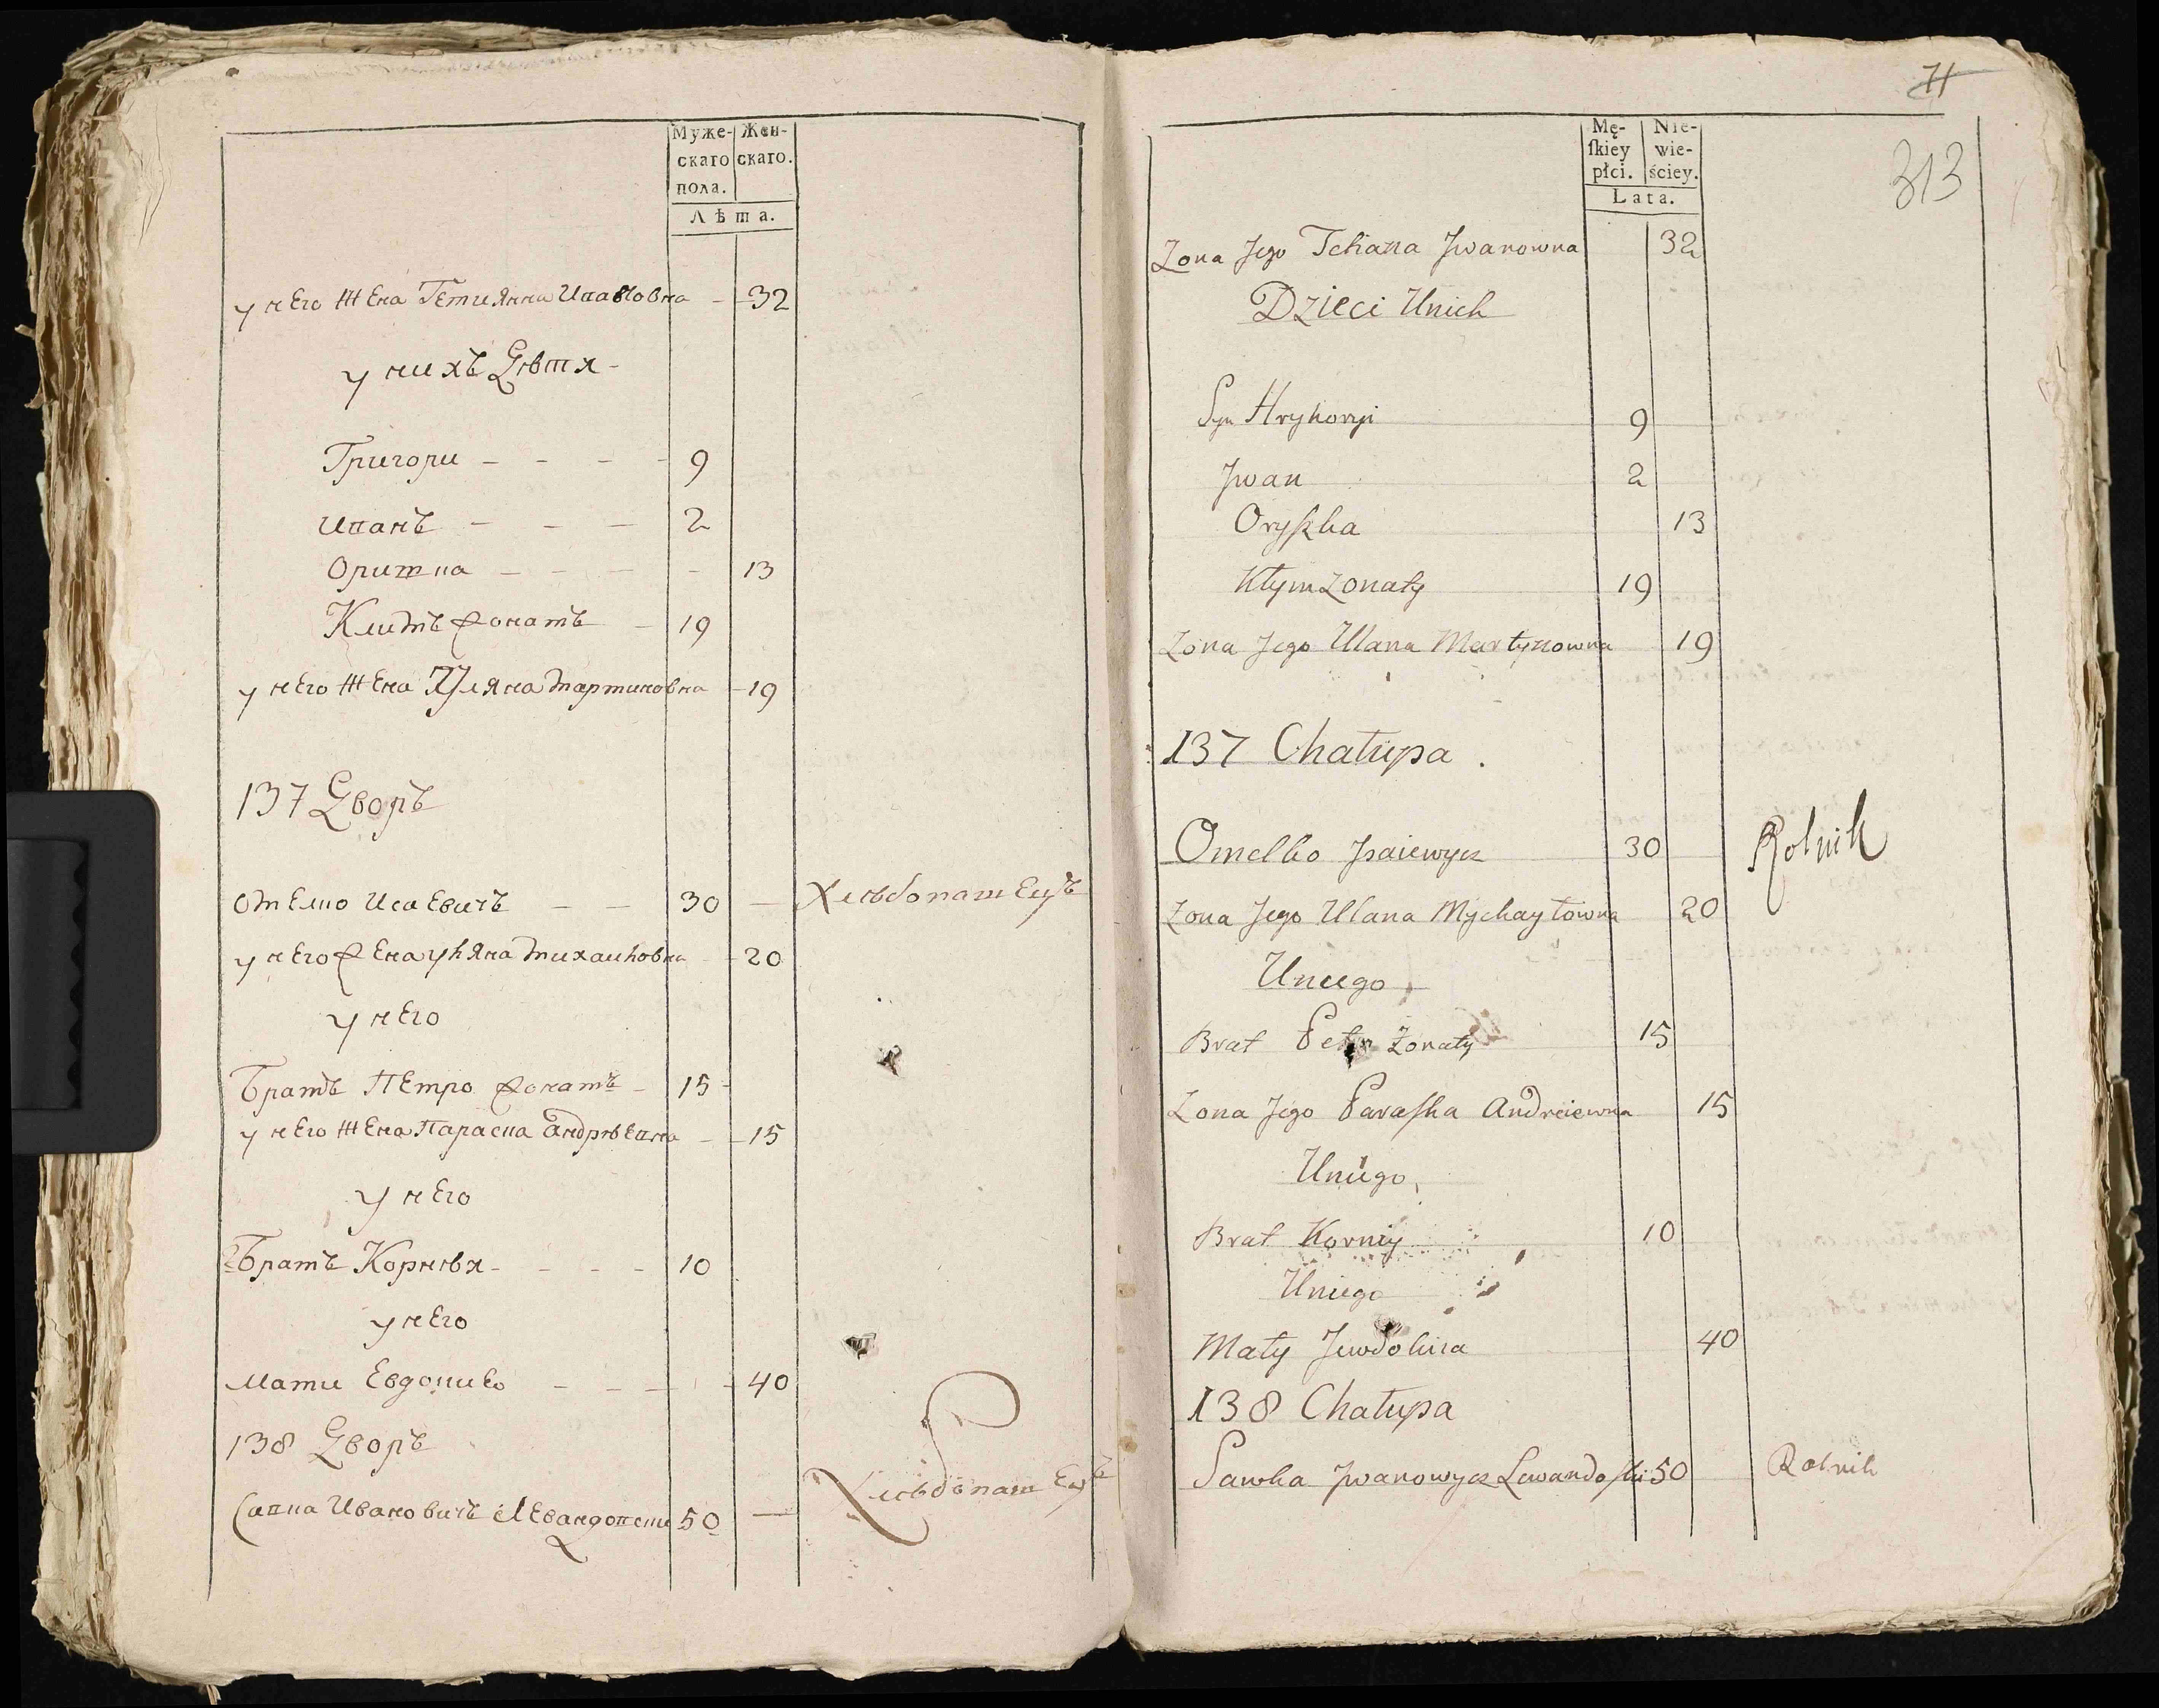 Муже- Жен-
скаго скаго.
пола.
Лѣта.
у него жена Гетиянна Ивановна - - 32
у нихъ Дѣтя -
Григори - - - - 9
Иванъ - - - 2
Оришка - - - - 13
Климъ жонатъ - 19
у него жена Уляна Мартиновна - 19
137 Дворъ
Омелко Исаевичъ - - 30 - Хлѣбопашецъ
у него жена Уляна Михаиловна - - 20
у него
Братъ Петро жонатъ - 15 -
у него жена Параска Андрѣевна - - 15
у него
2 Братъ Корнѣя - - - - 10
у него
Мати Евдокия - - - - 40
138 Дворъ
Савка Ивановичъ Левандовски 50 - Хлѣбопашецъ
71
313
Mę- Nie-
ſkiey wie-
płci. ściey.
Lata.
Zona Jego Tetiana Jwanowna 32
Dzieci Unich
Syn Hryhoryi 9
Jwan 2
Oryszka 13
Kłym Zonaty 19
Zona Jego Ulana Martynowna 19
137 Chałupa.
Omelko Jsaiewycz 30 Rolnik
Zona Jego Ulana Mychayłowna 20
Uniego
Brat Petr Zonaty 15
Zona Jego Paraſka Andreiewna 15
Uniego
Brat Korniy 10
Uniego
Maty Jewdokiia 40
138 Chałupa
Sawka Jwanowycz Lewandoſki 50 Rolnik